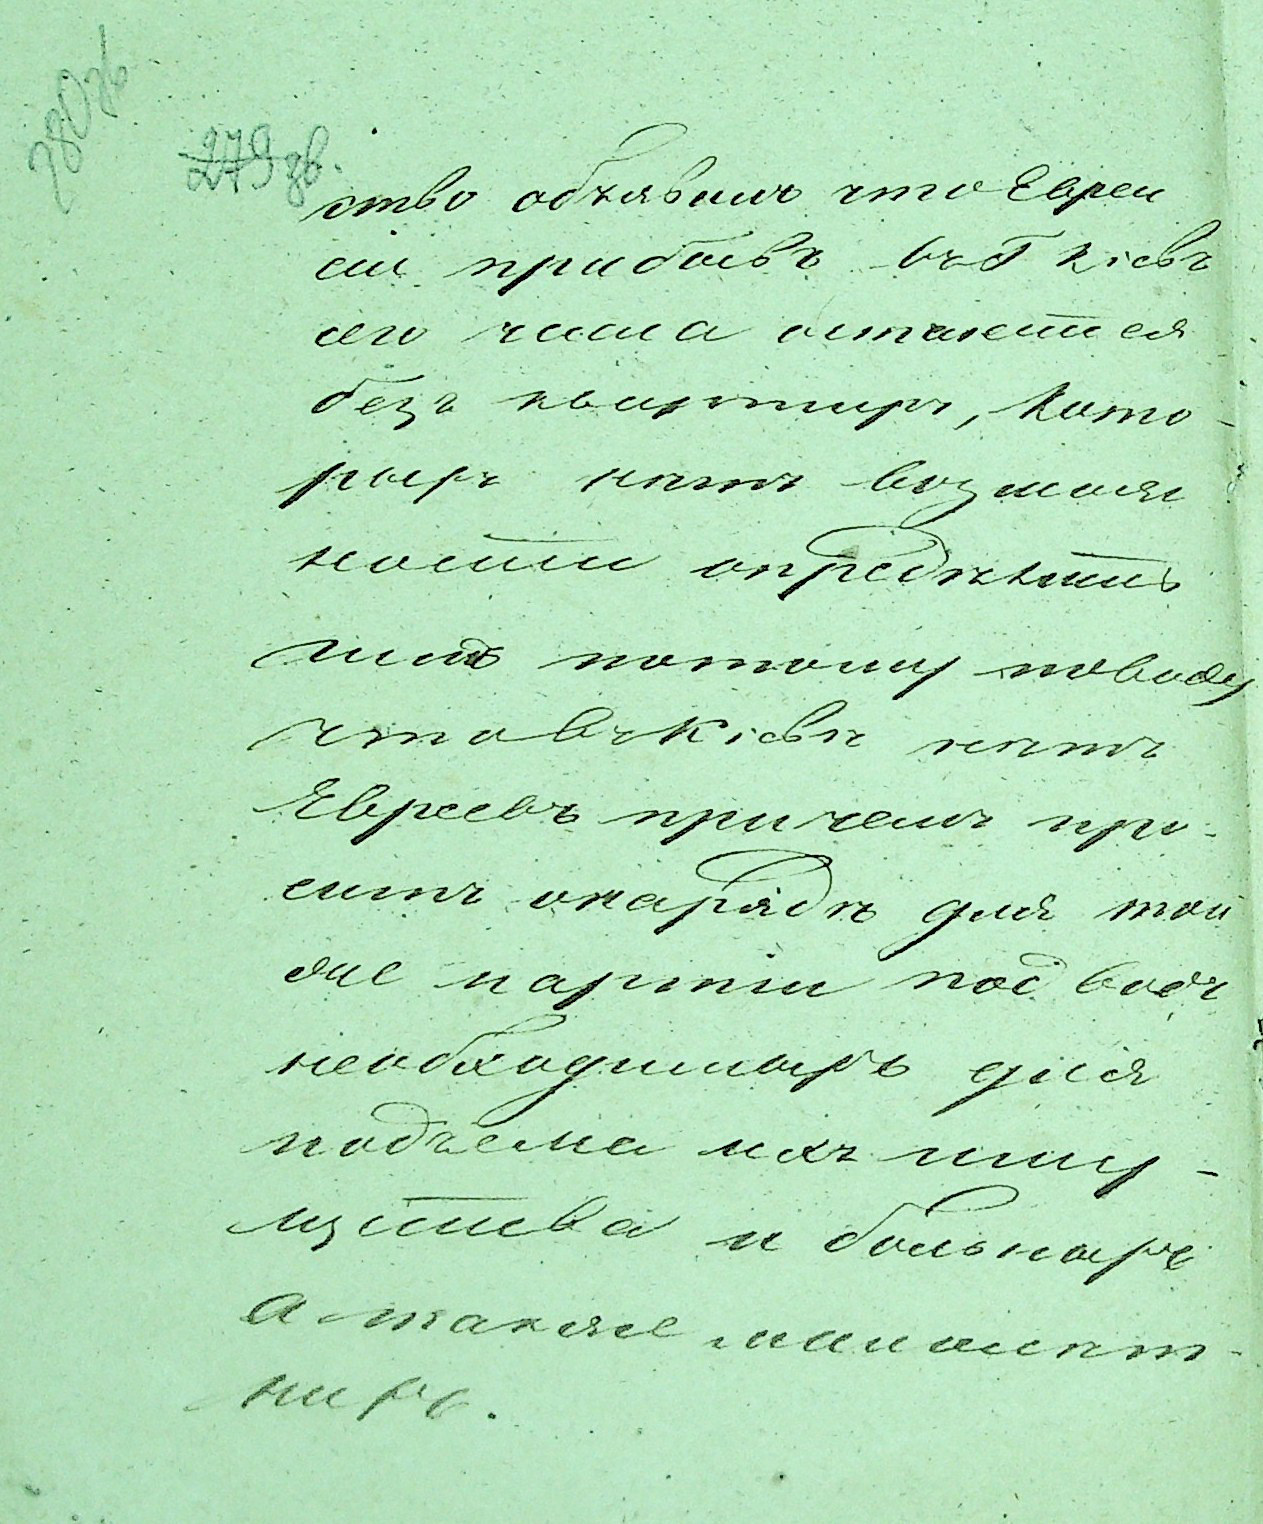 280 зв
279 зв.
ство объявилъ что Евреи
сіи прибывъ въ г Кіевъ
сего числа остаются
безъ квартиръ, кото-
рыхъ нѣтъ возмож
ности опредѣлить
имъ потому поводу
что въ Кіевѣ нѣтъ
Евреевъ причемъ про-
ситъ онарядѣ для той
же партіи подводъ
необходимыхъ для
подъема ихъ иму-
щества и больныхъ
а также малолѣт-
нихъ.